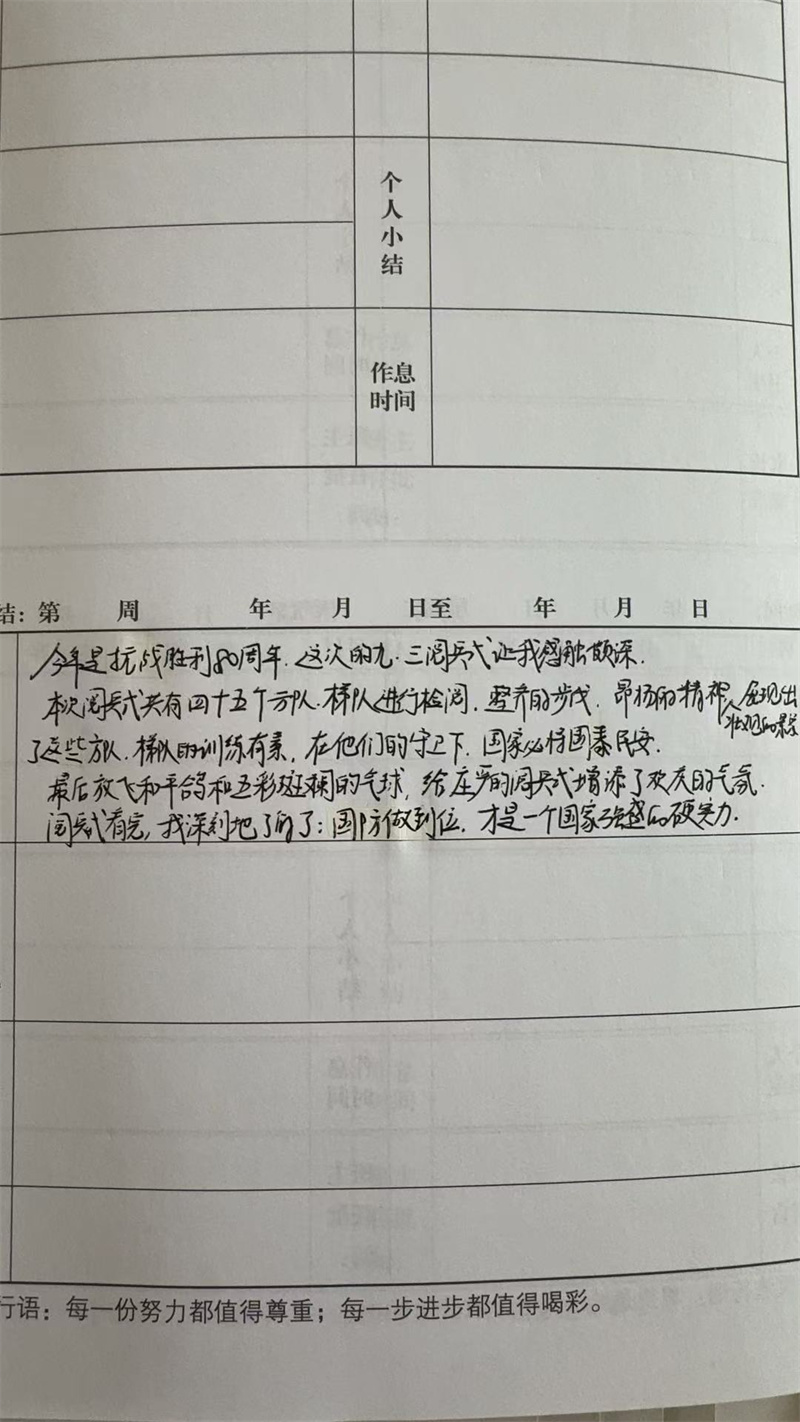 个人小结
作息
时间
结：第 周 年 月 日至 年 月 日
今年是抗战胜利80周年. 这次的九·三阅兵式让我感触颇深.
本次阅兵式共有四十五个方队、梯队进行检阅, 整齐的步伐、昂扬的精神
了这些方队、梯队的训练有素, 在他们的守卫下, 国家必将国泰民安.
最后放飞和平鸽和五彩斑斓的气球, 给庄严的阅兵式增添了欢庆的气氛.
阅兵式看完, 我深刻地了解了: 国防做到位, 才是一个国家强盛的硬实力.
行语：每一份努力都值得尊重；每一步进步都值得喝彩。